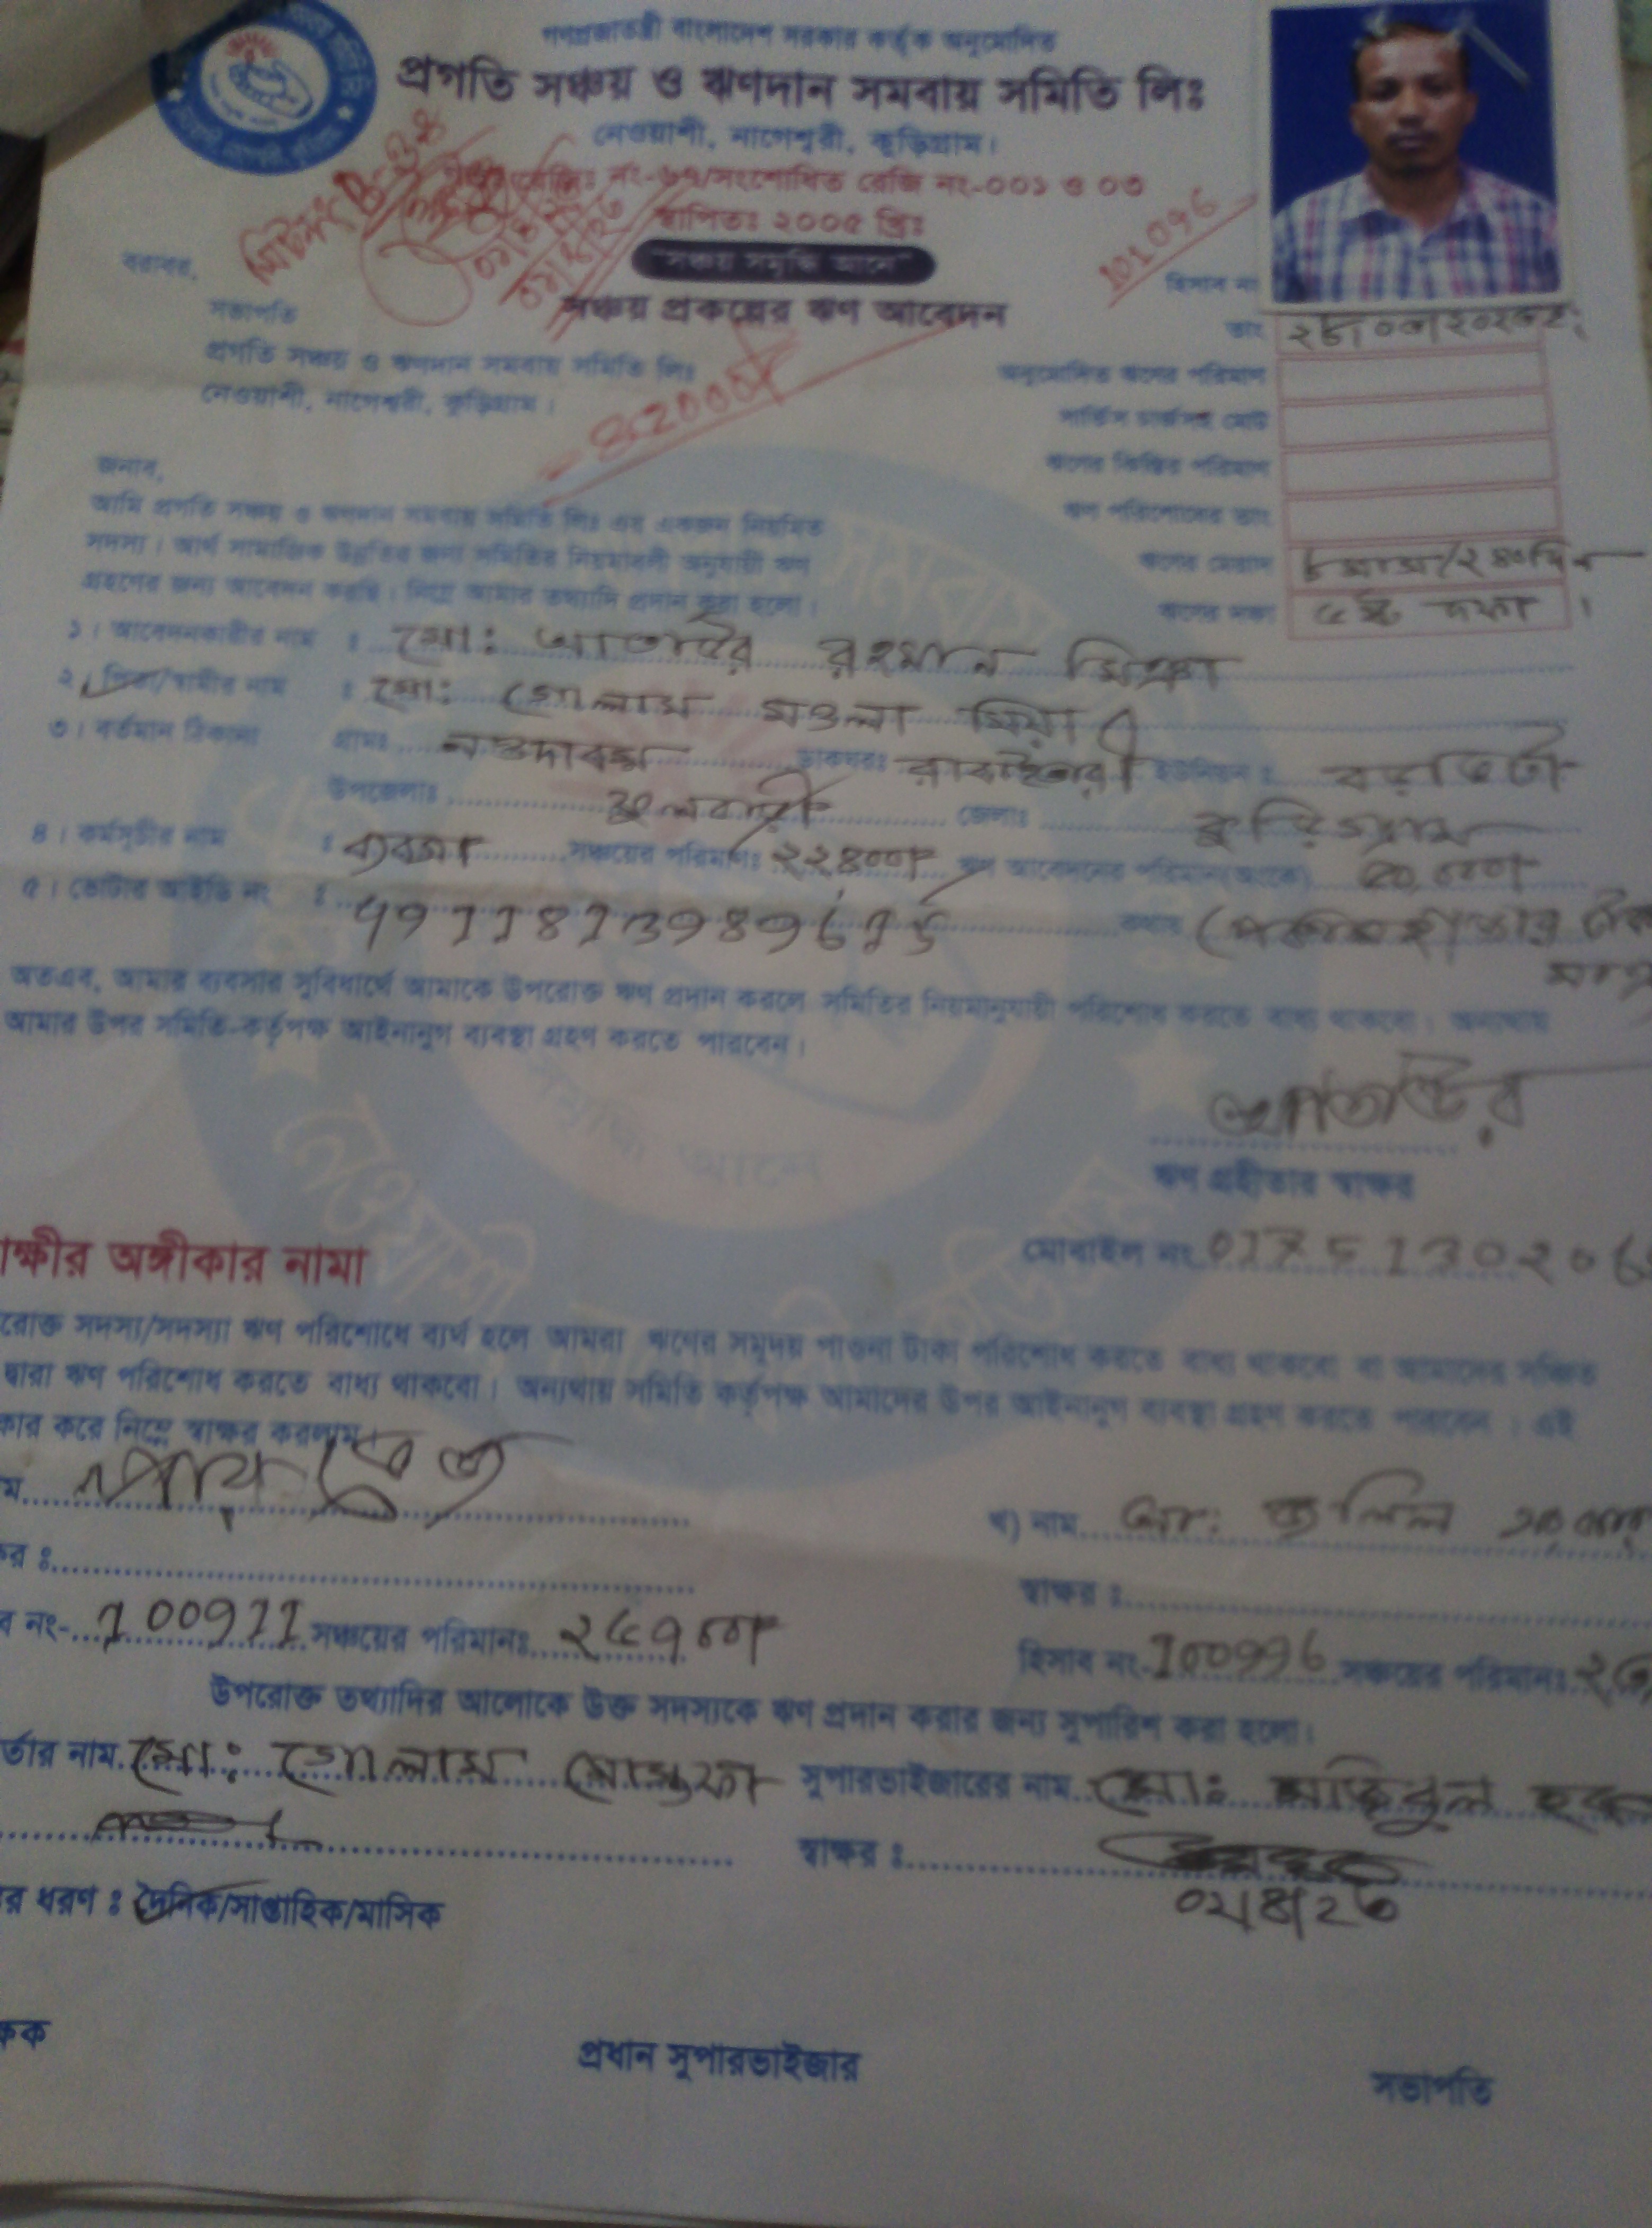 গণপ্রজাতন্ত্রী বাংলাদেশ সরকার কর্তৃক অনুমোদিত
প্রগতি সঞ্চয় ও ঋণদান সমবায় সমিতি লিঃ
নেওয়াশী, নাগেশ্বরী, কুড়িগ্রাম।
রেজিঃ নং-৬৭/সংশোধিত রেজি নং-০০১ ও ০৩
স্থাপিতঃ ২০০৫ খ্রিঃ
"সঞ্চয় সমৃদ্ধি আনে"
101096
বরাবর,
হিসাব নং
সঞ্চয় প্রকল্পের ঋণ আবেদন
সভাপতি
তাং
প্রগতি সঞ্চয় ও ঋণদান সমবায় সমিতি লিঃ
নেওয়াশী, নাগেশ্বরী, কুড়িগ্রাম।
অনুমোদিত ঋণের পরিমাণ
সার্ভিস চার্জসহ মোট
ঋণের কিস্তির পরিমাণ
ঋণ পরিশোধের তাং
ঋণের মেয়াদ ৮মাস/২৪০দিন
ঋণের দফা ৫ম দফা।
জনাব,
আমি প্রগতি সঞ্চয় ও ঋণদান সমবায় সমিতি লিঃ এর একজন নিয়মিত
সদস্য। আর্থ সামাজিক উন্নতির জন্য সমিতির নিয়মাবলী অনুযায়ী ঋণ
গ্রহণের জন্য আবেদন করছি। নিম্নে আমার তথ্যাদি প্রদান করা হলো।
১। আবেদনকারীর নাম : মোঃ আতাউর রহমান মিঞা
২। পিতা/স্বামীর নাম : মোঃ গোলাম মওলা মিয়া
৩। বর্তমান ঠিকানা গ্রামঃ নওদাবস ডাকঘরঃ রাবাইতারী ইউনিয়নঃ বড়ভিটা
উপজেলাঃ ফুলবাড়ী জেলাঃ কুড়িগ্রাম
৪। কর্মসূচীর নাম : ব্যবসা সঞ্চয়ের পরিমাণঃ ২২৪০০/= ঋণ আবেদনের পরিমান(অংকে) ৫০,০০০/=
৫। ভোটার আইডি নং : কথায় (পঞ্চাশ হাজার টাকা
মাত্র
অতএব, আমার ব্যবসার সুবিধার্থে আমাকে উপরোক্ত ঋণ প্রদান করলে সমিতির নিয়মানুযায়ী পরিশোধ করতে বাধ্য থাকবো। অন্যথায়
আমার উপর সমিতি-কর্তৃপক্ষ আইনানুগ ব্যবস্থা গ্রহণ করতে পারবেন।
আতাউর
ঋণ গ্রহীতার স্বাক্ষর
ক্ষীর অঙ্গীকার নামা
মোবাইল নং
রোক্ত সদস্য/সদস্যা ঋণ পরিশোধে ব্যর্থ হলে আমরা ঋণের সমূদয় পাওনা টাকা পরিশোধ করতে বাধ্য থাকবো বা আমাদের সঞ্চিত
দ্বারা ঋণ পরিশোধ করতে বাধ্য থাকবো। অন্যথায় সমিতি কর্তৃপক্ষ আমাদের উপর আইনানুগ ব্যবস্থা গ্রহণ করতে পারবেন। এই
কার করে নিম্নে স্বাক্ষর করলাম।
ম
খ) নাম আঃ জলিল
ক্ষর ঃ
স্বাক্ষর ঃ
ব নং- 100911 সঞ্চয়ের পরিমানঃ ২৫৭০০/=
হিসাব নং- 100996 সঞ্চয়ের পরিমানঃ
উপরোক্ত তথ্যাদির আলোকে উক্ত সদস্যকে ঋণ প্রদান করার জন্য সুপারিশ করা হলো।
র্তার নাম মোঃ গোলাম মোস্তফা সুপারভাইজারের নাম মোঃ হক
স্বাক্ষর ঃ
র ধরণ ঃ দৈনিক/সাপ্তাহিক/মাসিক
প্রধান সুপারভাইজার
সভাপতি